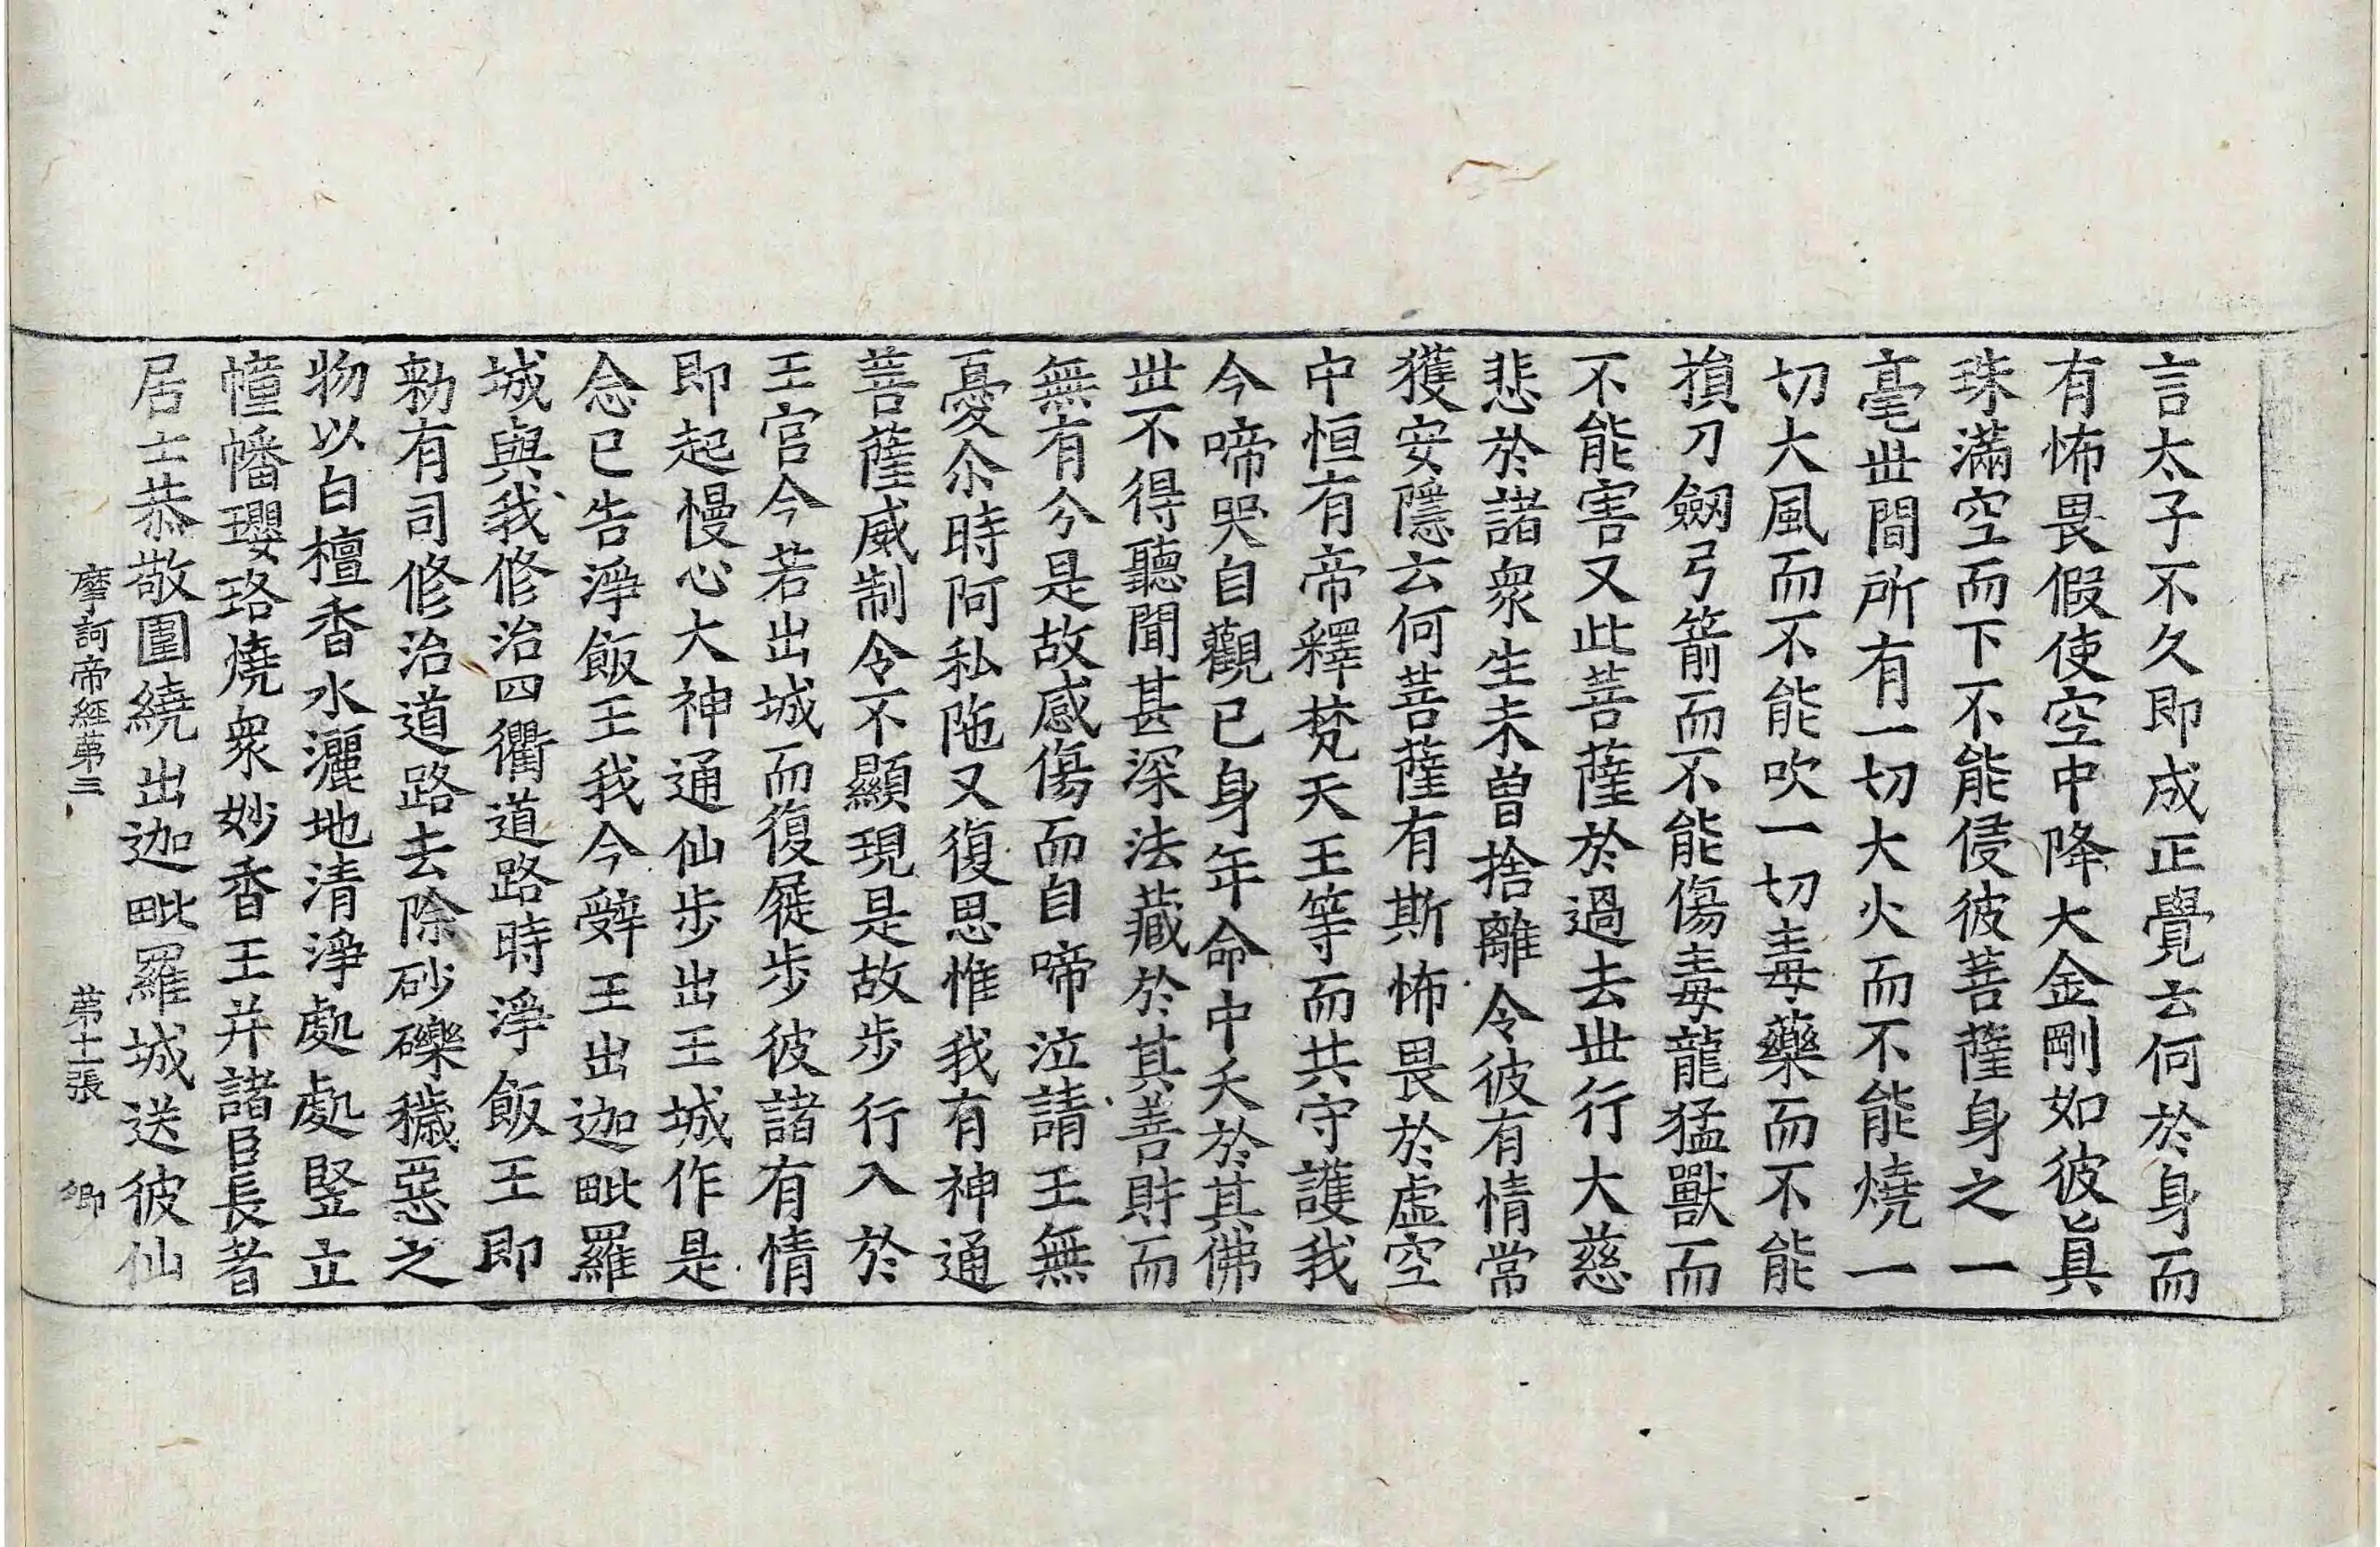 言太子不久即成正覺云何於身而
有怖畏假使空中降大金剛如彼眞
珠滿空而下不能侵彼菩薩身之一
毫世間所有一切大火而不能燒一
切大風而不能吹一切毒藥而不能
損刀劔弓箭而不能傷毒龍猛獸而
不能害又此菩薩於過去世行大慈
悲於諸衆生未曾捨離令彼有情常
獲安隱云何菩薩有斯怖畏於虛空
中恒有帝釋梵天王等而共守護我
今啼哭自觀已身年命中夭於其佛
世不得聽聞甚深法藏於其善財而
無有分是故感傷而自啼泣請王無
憂尒時阿私陁又復思惟我有神通
菩薩威制令不顯現是故步行入於
王宮今若出城而復屣步彼諸有情
即起慢心大神通仙步出王城作是
念已告淨飯王我今辤王出迦毗羅
城與我修治四衢道路時淨飯王即
勑有司修治道路去除砂礫穢惡之
物以白檀香水灑地清淨處處竪立
幢幡瓔珞燒衆妙香王并諸臣長者
居士恭敬圍繞出迦毗羅城送彼仙
摩訶帝經第三 第十二張 卿